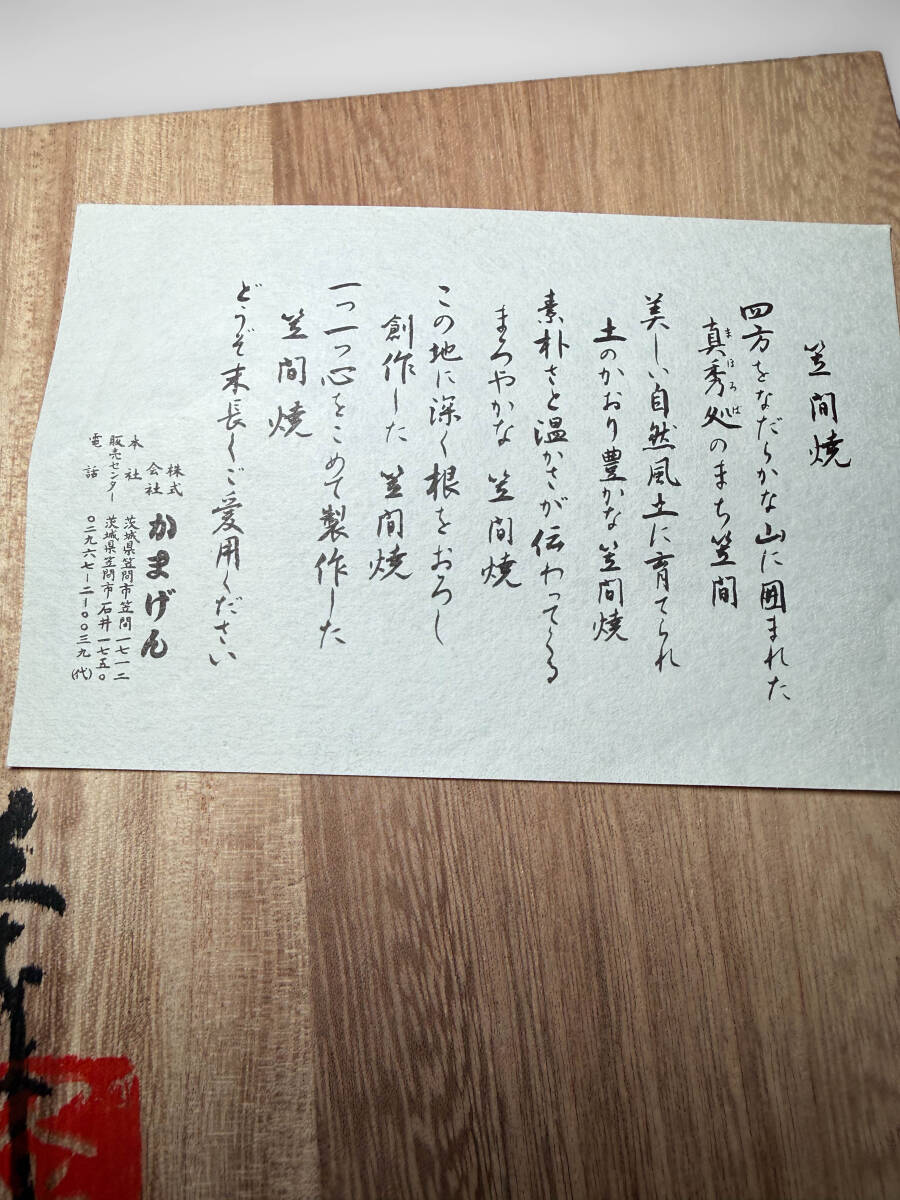 笠間焼
四方をなだらかな山に囲まれた
真秀処のまち笠間
まほろば
美しい自然風土に育てられ
土のかおり豊かな笠間焼
素朴さと温かさが伝わってくる
まろやかな 笠間焼
この地に深く根をおろし
創作した 笠間焼
一つ一つ心をこめて製作した
笠間焼
どうぞ末長くご愛用ください
株式会社 かまげん
本社 茨城県笠間市笠間一七一二
販売センター 茨城県笠間市石井一七五〇
電話 〇二九六七―二―〇〇三九(代)